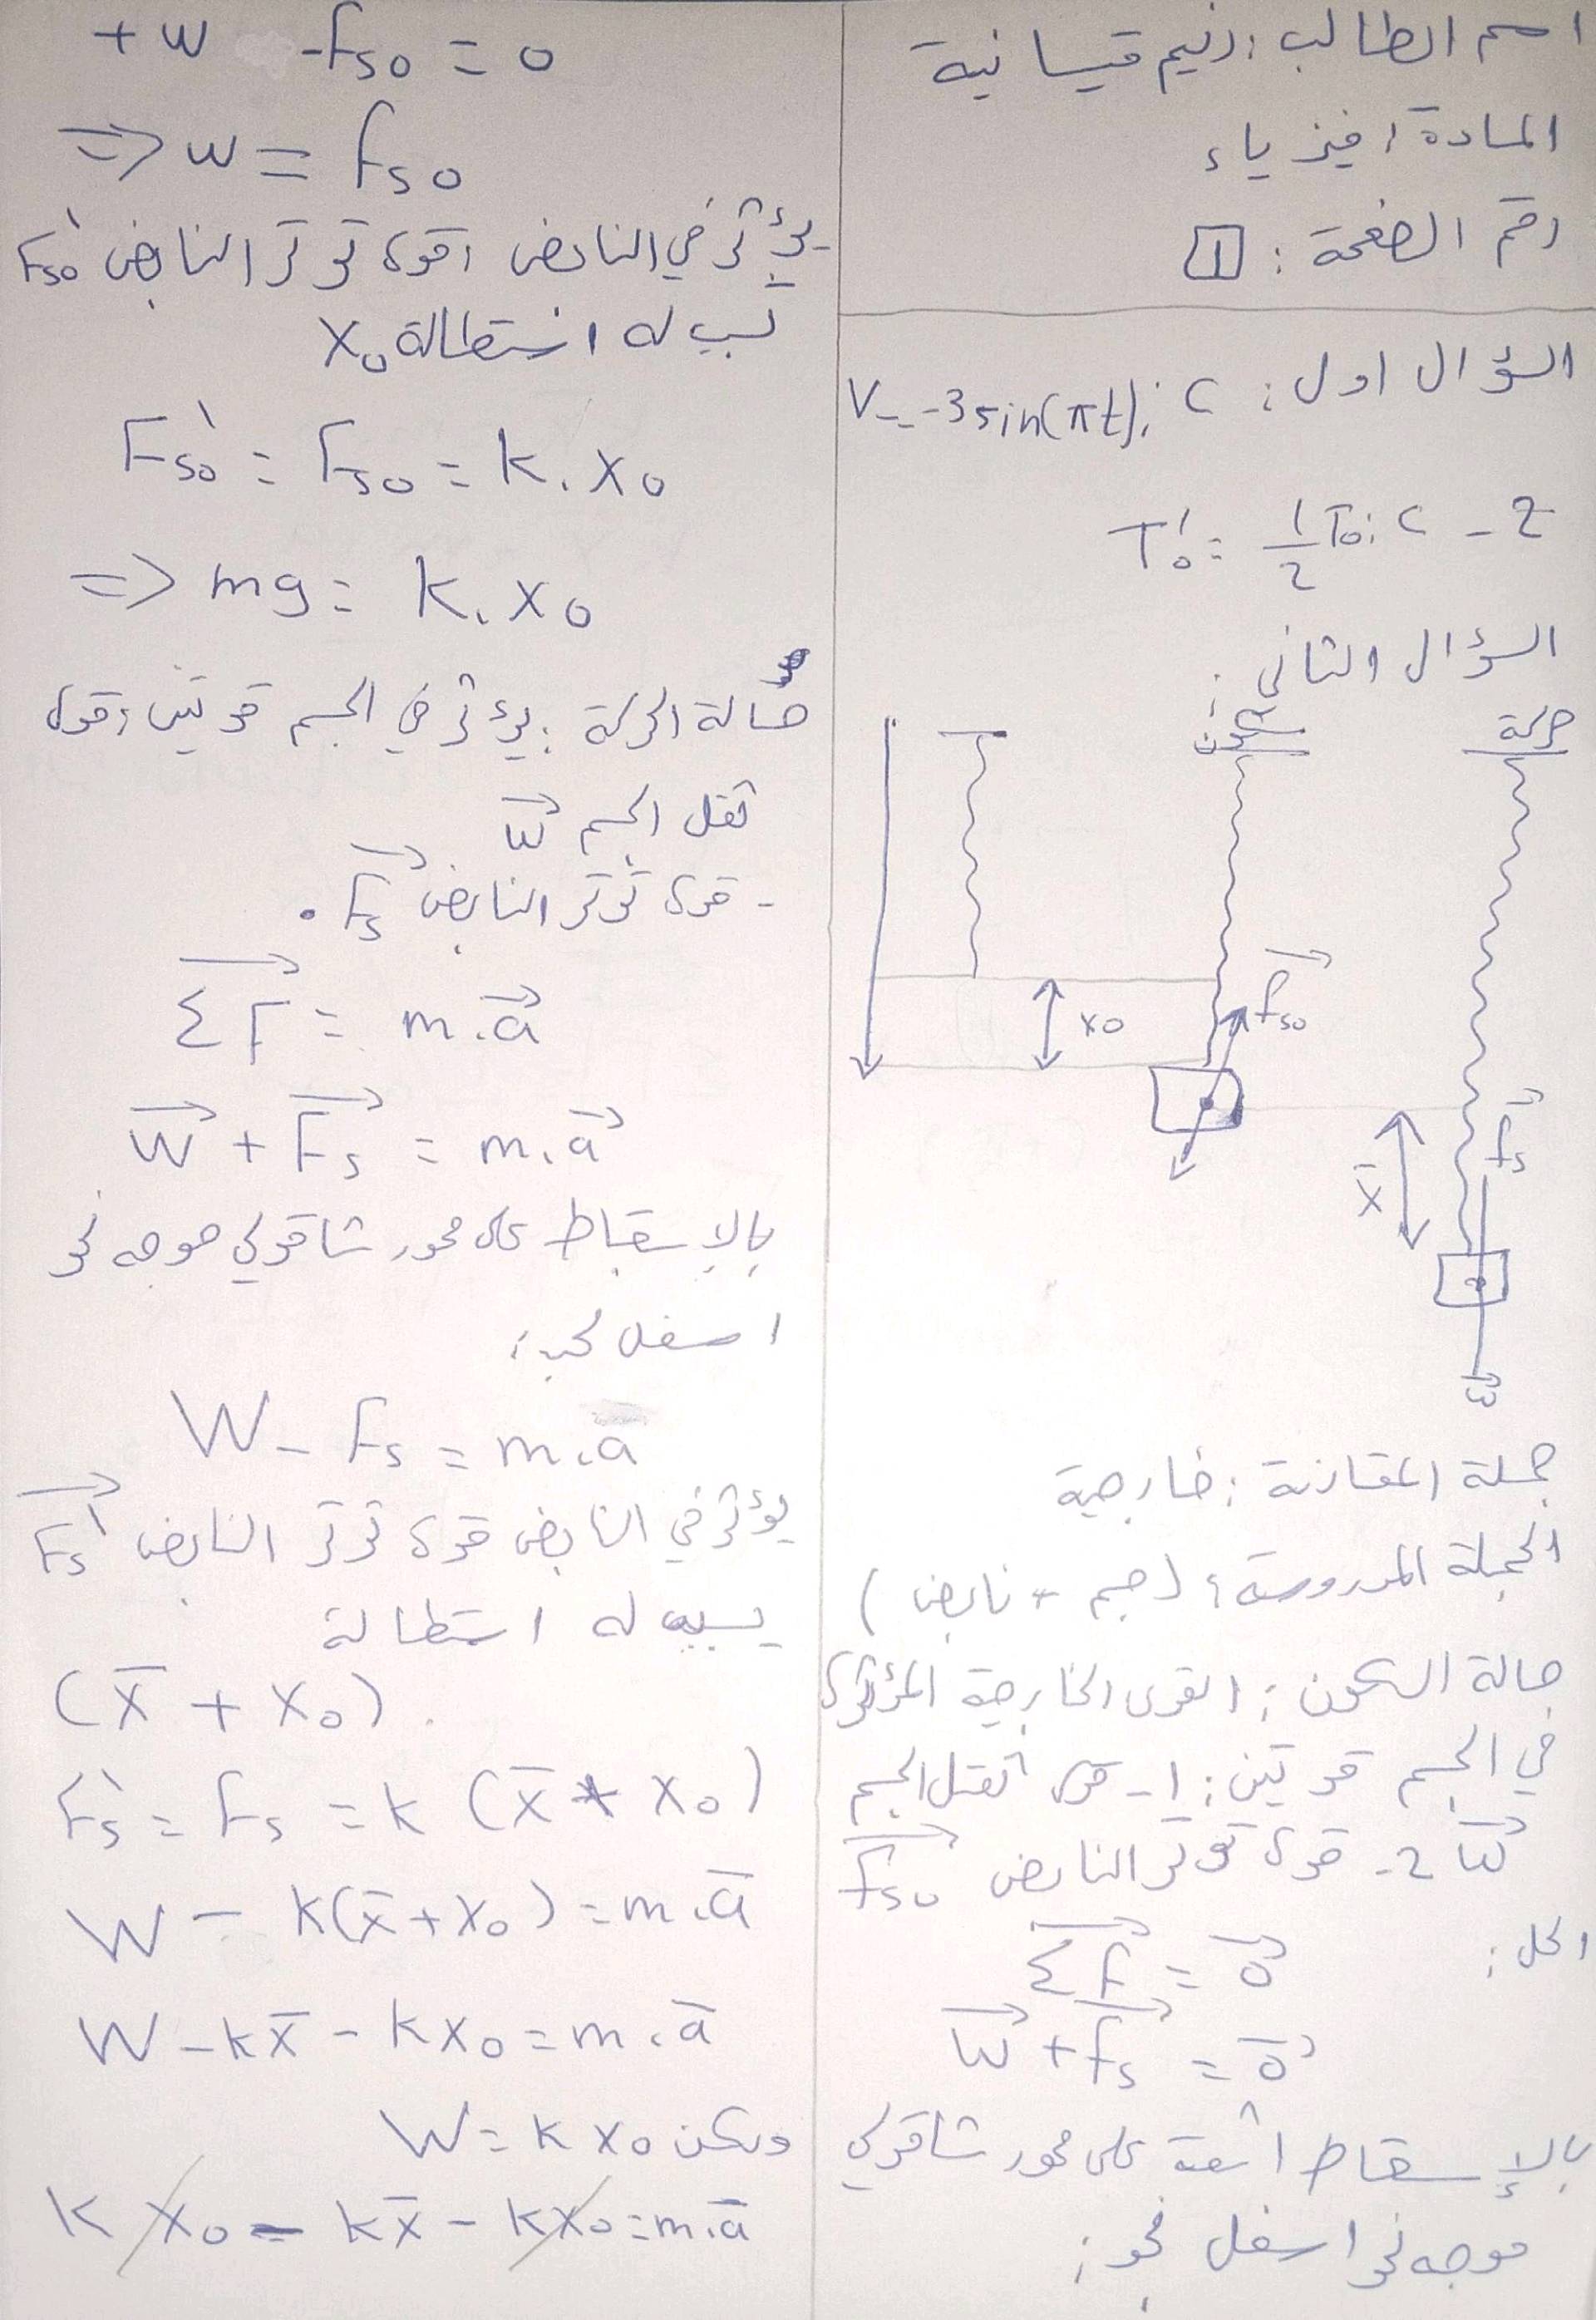 اسم الطالب: رنيم قيسانية
المادة: فيزياء
رقم الصفحة: 1
السؤال اول: c : V = -3 sin(πt)
2 - c : T₀' = 1/2 T₀
السؤال الثاني:
حركة
سكون
x₀
F⃗s₀
F⃗s
x̄
w⃗
جملة المقارنة: خارجية
الجملة المدروسة: (جسم + نابض)
حالة السكون: القوى الخارجية المؤثرة
في الجسم قوتين: 1- قوى ثقل الجسم
w⃗ 2- قوى توتر النابض F⃗s₀
الحل: ΣF⃗ = 0⃗
w⃗ + F⃗s = 0⃗
بالإسقاط اشعة على محور شاقولي
موجه نحو اسفل نحو:
+w - Fs₀ = 0
⇒ w = Fs₀
يؤثر في النابض قوى توتر النابض Fs₀'
تسبب له استطالة x₀
Fs₀' = Fs₀ = k . x₀
⇒ mg = k . x₀
حالة الحركة: يؤثر في الجسم قوتين: قوى
ثقل الجسم w⃗
- قوى توتر النابض F⃗s .
ΣF⃗ = m . a⃗
W⃗ + F⃗s = m . a⃗
بالإسقاط على محور شاقولي موجه نحو
اسفل نجد:
W - Fs = m . ā
يؤثر في النابض قوى توتر النابض F⃗s'
يسبب له استطالة
(x̄ + x₀)
Fs' = Fs = k (x̄ + x₀)
W - k(x̄ + x₀) = m . ā
W - kx̄ - kx₀ = m . ā
ولكن W = k x₀
k x₀ - kx̄ - kx₀ = m . ā